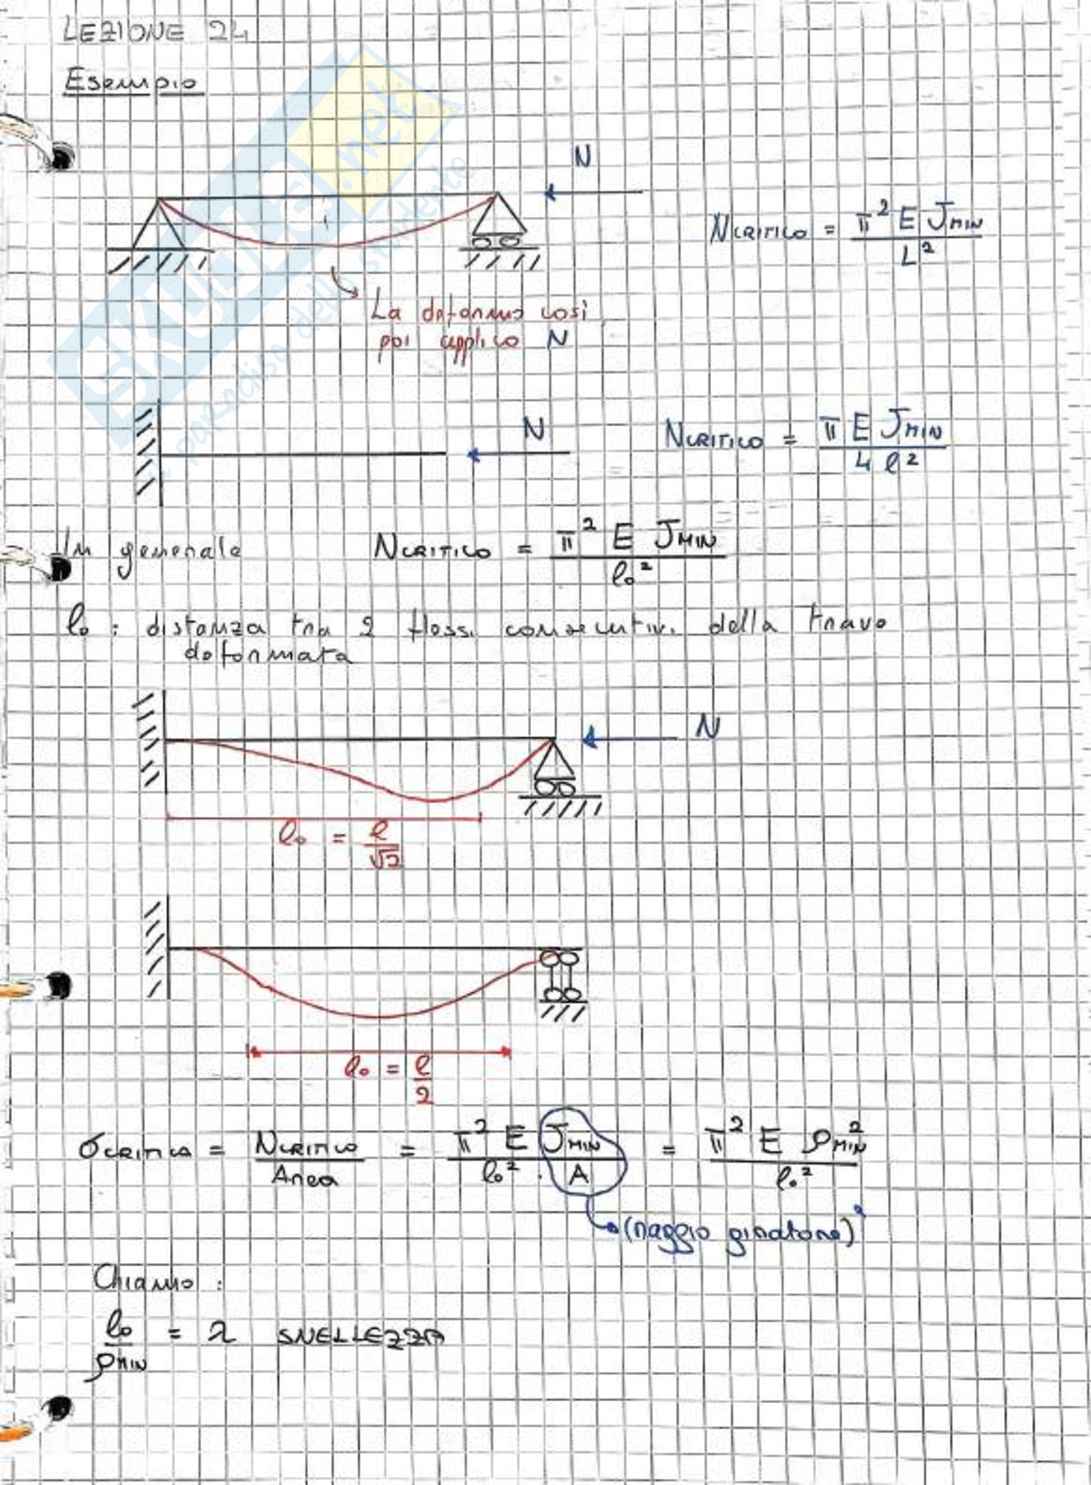 LEZIONE 24
Esempio
SKUOLA.net
paradiso dello studente
N
N CRITICO = π² E J MIN / L²
La deformo così
poi applico N
N
N CRITICO = π E J MIN / 4 l²
In generale N CRITICO = π² E J MIN / l₀²
l₀ : distanza tra 2 flessi consecutivi della trave
deformata
N
l₀ = l / √2
l₀ = l / 2
σ CRITICA = N CRITICO / Area = π² E J MIN / l₀² · A = π² E ρ² MIN / l₀²
(raggio giratore)²
Chiamo :
l₀ / ρ MIN = λ SNELLEZZA